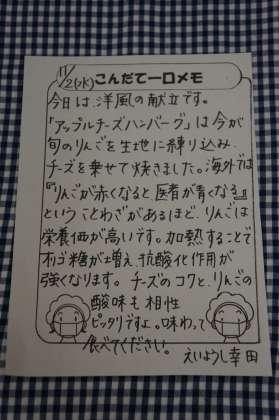 11/2(水)こんだて一口メモ
今日は、洋風の献立です。
「アップルチーズハンバーグ」は今が
旬のりんごを生地に練り込み、
チーズを乗せて焼きました。海外では
『りんごが赤くなると医者が青くなる』
ということわざがあるほど、りんごは
栄養価が高いです。加熱することで
オリゴ糖が増え、抗酸化作用が
強くなります。チーズのコクと、りんごの
酸味も相性
ピッタリですよ。味わって
食べてください。
えいようし幸田